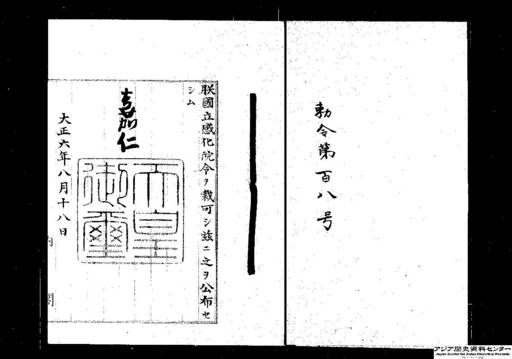 勅令第百八号
朕國立感化院令ヲ裁可シ茲ニ之ヲ公布セ
シム
嘉仁
天皇
御璽
大正六年八月十八日
内閣
アジア歴史資料センター
Japan Center for Asian Historical Records